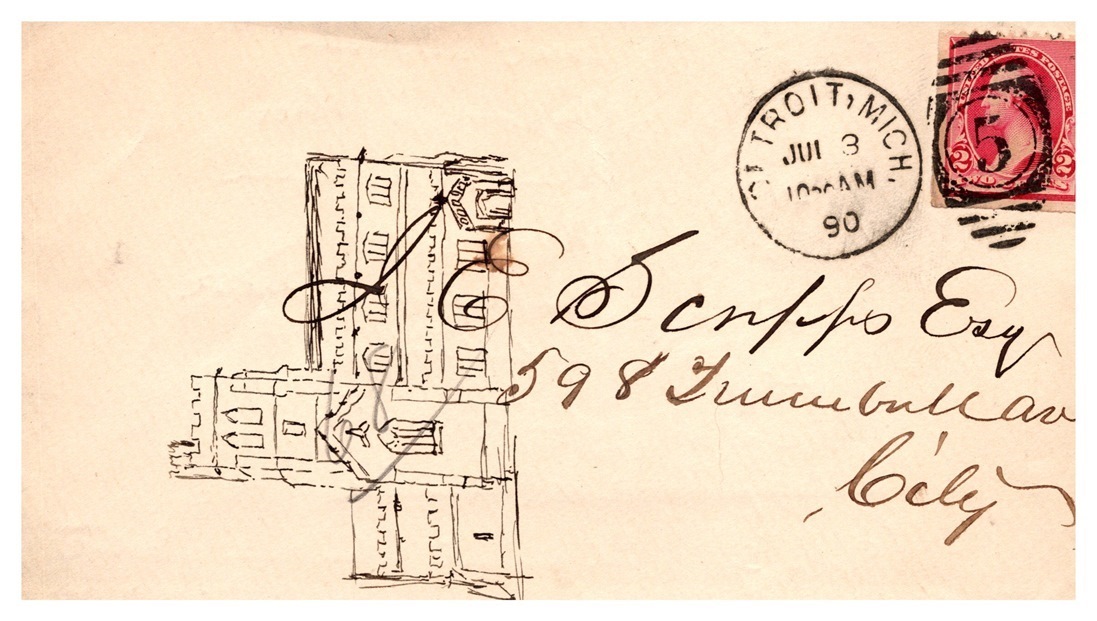 DETROIT, MICH.
JUL 3
10 AM
90
UNITED STATES POSTAGE
2 2
5
J E Scripps Esq
598 Trumbull av
City
68